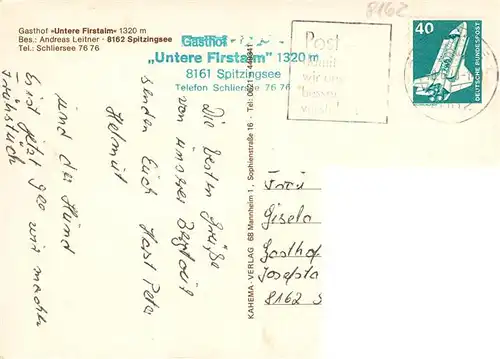 Gasthof »Untere Firstalm« 1320 m
Bes.: Andreas Leitner · 8162 Spitzingsee
Tel.: Schliersee 76 76
Gasthof
„Untere Firstalm" 1320 m
8161 Spitzingsee
Telefon Schliersee 76 76
8162
Post
40
DEUTSCHE BUNDESPOST
Die besten Grüße
von unserer
senden Euch Horst Peter
Helmut
und der Hund
Es ist jetzt 9.00 wir machen
Frühstück
KAHEMA-VERLAG 68 Mannheim 1, Sophienstraße 16 · Tel.: 0621
Frau
Gisela
Gasthof
Josefsta
8162 S